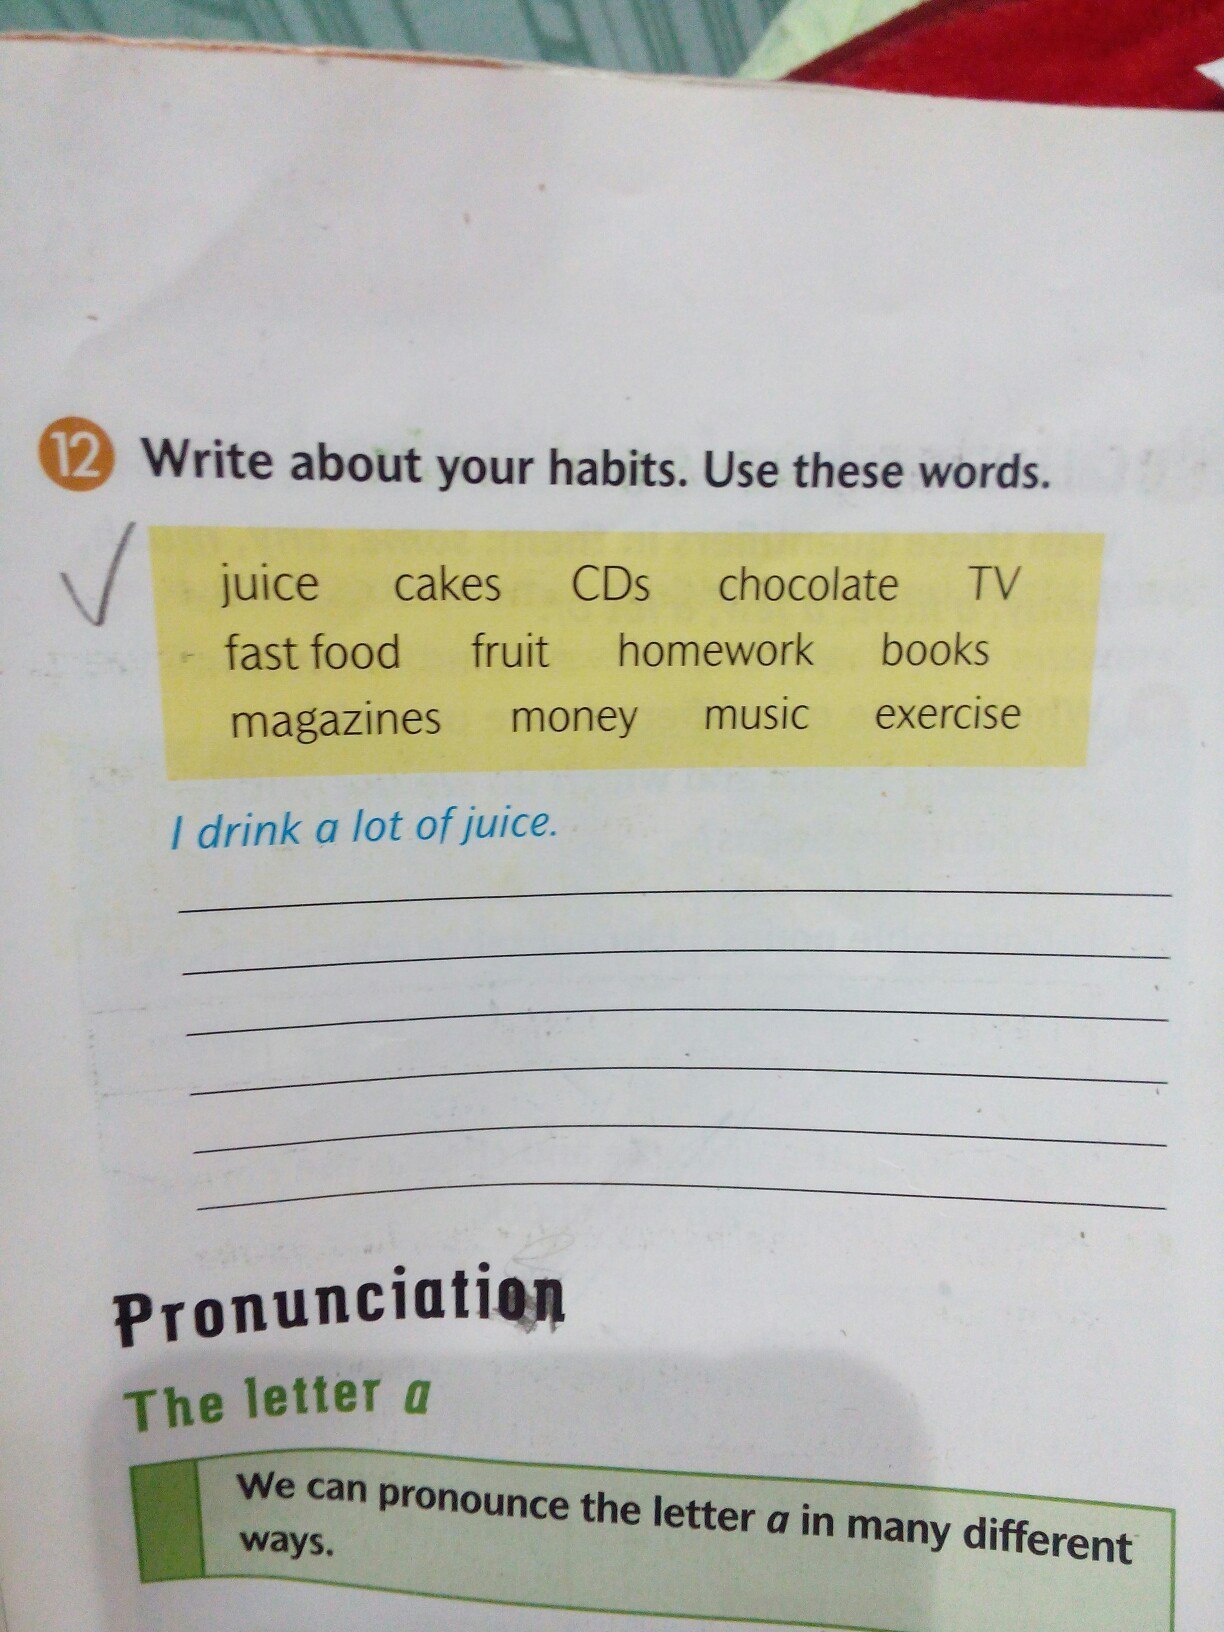 12 Write about your habits. Use these words.
juice cakes CDs chocolate TV
fast food fruit homework books
magazines money music exercise
I drink a lot of juice.
Pronunciation
The letter a
We can pronounce the letter a in many different
ways.